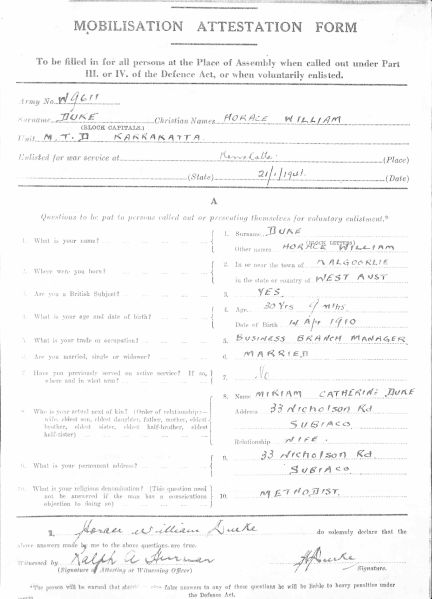 MOBILISATION ATTESTATION FORM
To be filled in for all persons at the Place of Assembly when called out under Part
III. or IV. of the Defence Act, or when voluntarily enlisted.
Army No. W9611
Surname DUKE Christian Names HORACE WILLIAM
(BLOCK CAPITALS.)
Unit M.T.D KARRAKATTA.
Enlisted for war service at (Place)
(State) 21/1/1941. (Date)
A
Questions to be put to persons called out or presenting themselves for voluntary enlistment.*
1. What is your name? 1. Surname DUKE
(BLOCK LETTERS)
Other names HORACE WILLIAM
2. Where were you born? 2. In or near the town of KALGOORLIE
in the state or country of WEST AUST
3. Are you a British Subject? 3. YES.
4. What is your age and date of birth? 4. Age 30 Yrs 9 mths
Date of Birth 14 Apr 1910
5. What is your trade or occupation? 5. BUSINESS BRANCH MANAGER
6. Are you married, single or widower? 6. MARRIED
7. Have you previously served on active service? If so,
where and in what arm? 7. No
8. Who is your actual next of kin? (Order of relationship:—
wife, eldest son, eldest daughter, father, mother, eldest
brother, eldest sister, eldest half-brother, eldest
half-sister)
8. Name MIRIAM CATHERINE DUKE
Address 33 Nicholson Rd
SUBIACO
Relationship WIFE.
9. What is your permanent address? 9. 33 Nicholson Rd
SUBIACO
10. What is your religious denomination? (This question need
not be answered if the man has a conscientious
objection to doing so)
10. METHODIST.
I, Horace William Duke do solemnly declare that the
above answers made by me to the above questions are true.
Witnessed by Ralph A HDuke
(Signature of Attesting or Witnessing Officer) Signature.
*The person will be warned that should false answers to any of these questions he will be liable to heavy penalties under
the Defence Act.